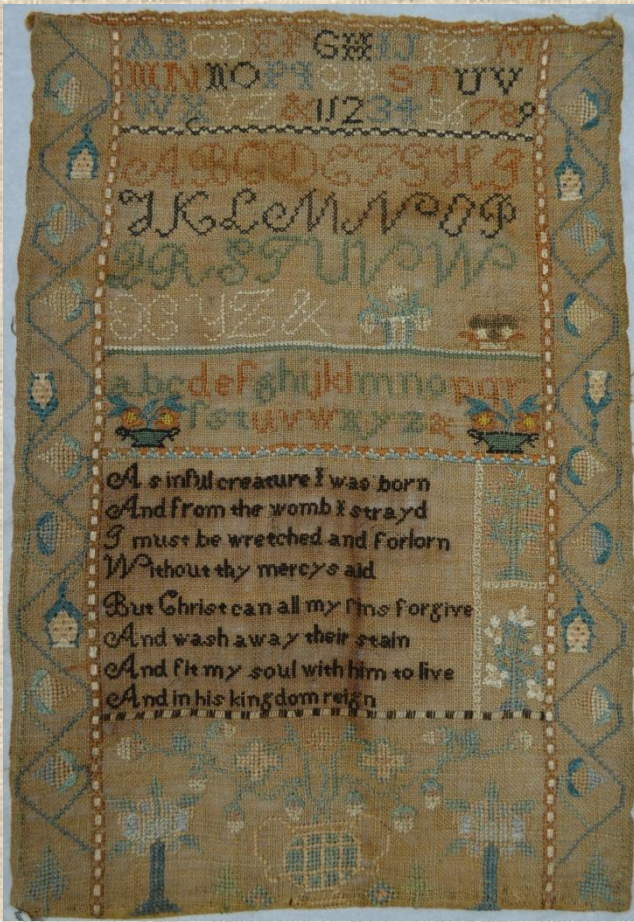 ABCDEFGHIJKLM
MNNOPPQRSTUV
WXYZ&123456789
ABCDEFGHI
JKLMNOP
QRSTUVW
XYZ&
abcdefghijklmnopqr
ſstuvwxyz&
A sinful creature I was born
And from the womb I strayd
I must be wretched and forlorn
Without thy mercys aid
But Christ can all my ſins forgive
And wash away their stain
And fit my soul with him to live
And in his kingdom reign